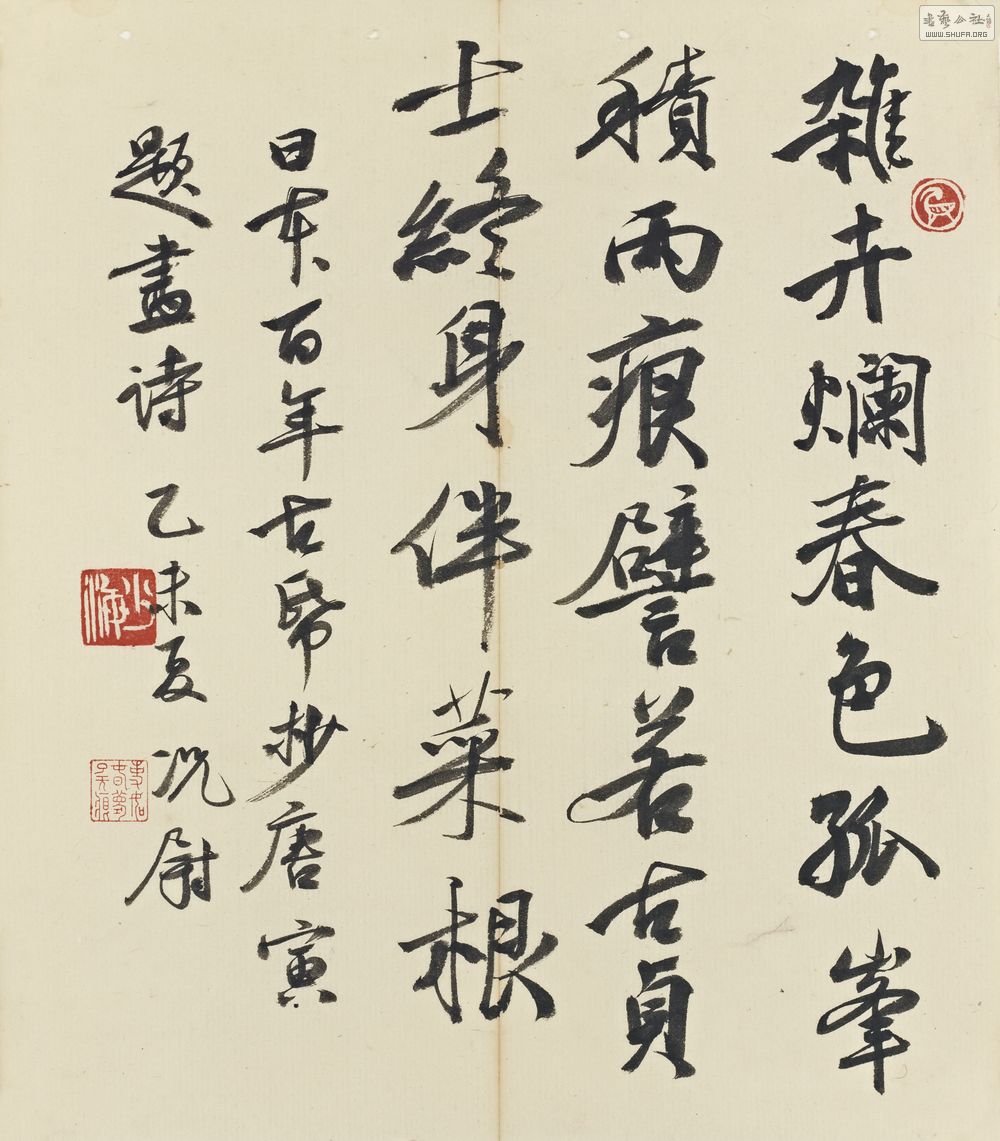 雜卉爛春色孤峯
積雨痕譬若古貞
士終身伴菜根
日本百年古帋抄唐寅
题畫诗乙未夏況尉
少海
書藝公社
WWW.SHUFA.ORG